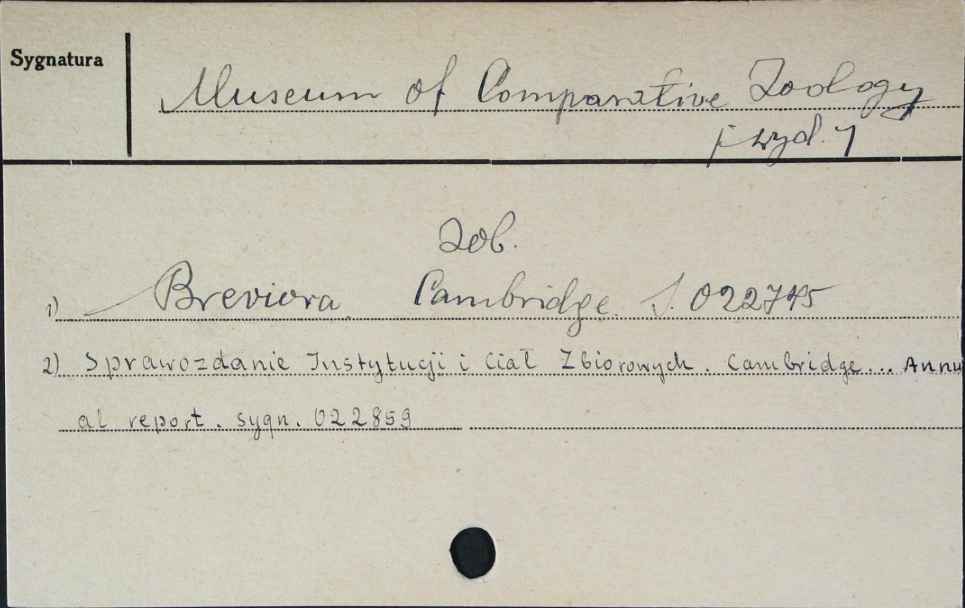 Sygnatura
Museum of Comparative Zoology
[wyd.]
Zob.
1) Breviora Cambridge S. 022745
2) Sprawozdanie Instytucji i Ciał Zbiorowych. Cambridge... Annu
al report. sygn. 022859